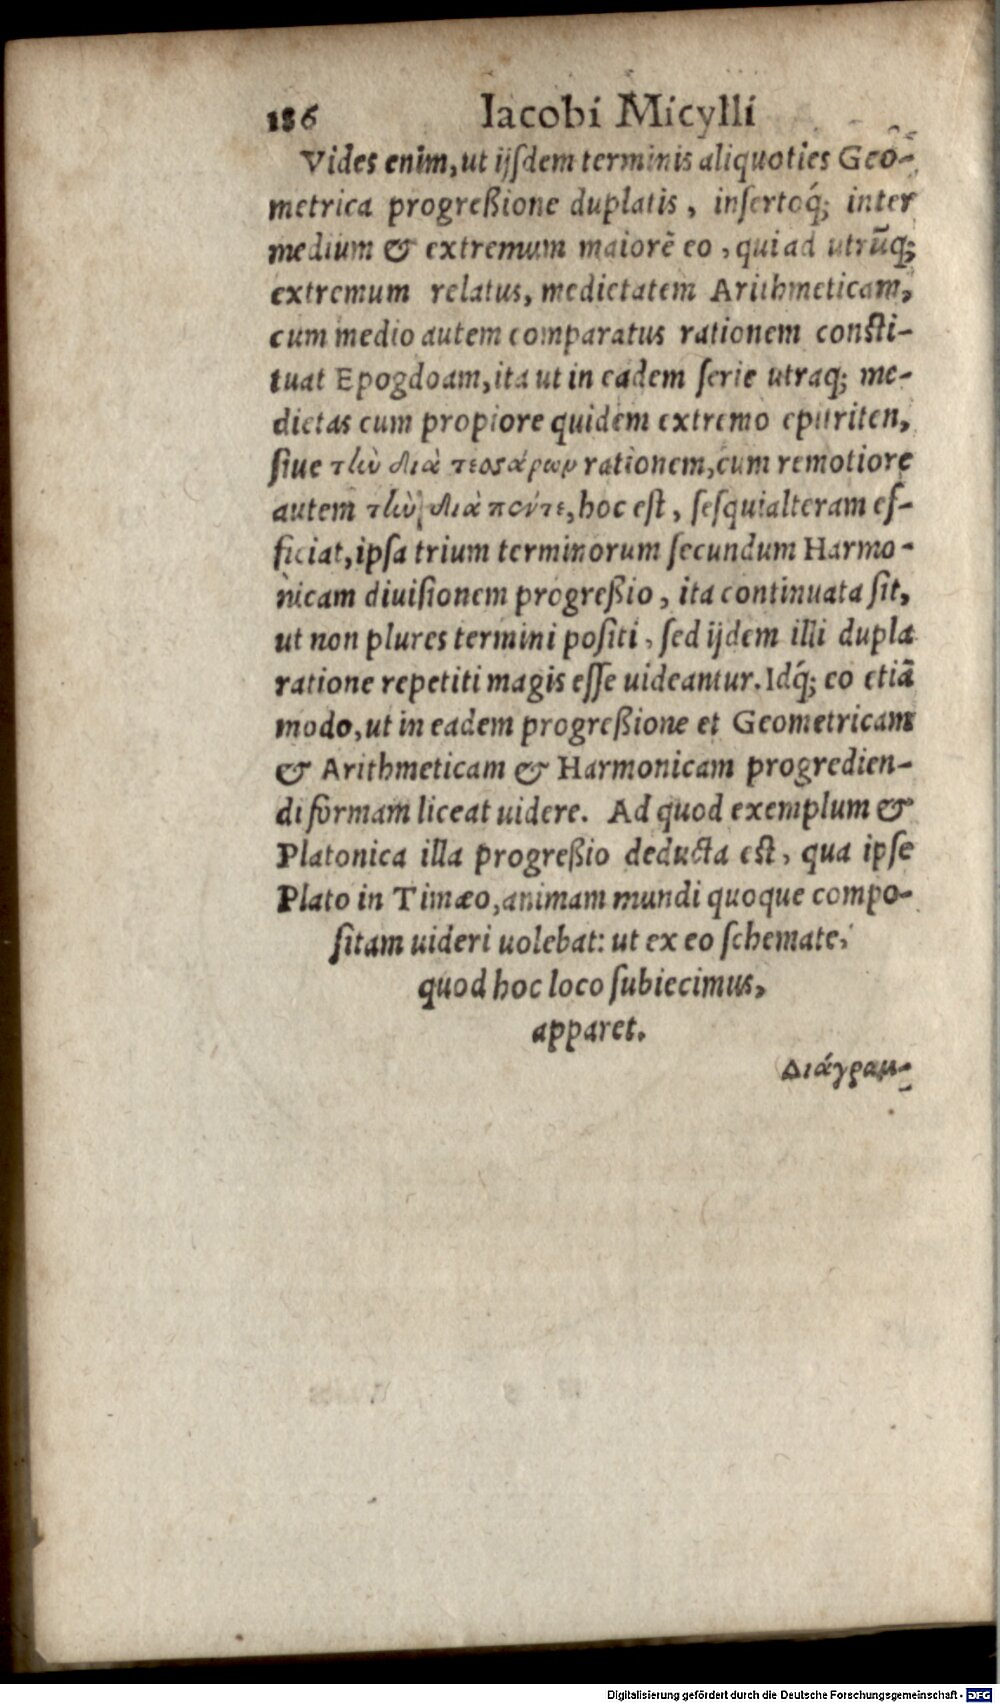 186 Iacobi Micylli
Vides enim, ut ijsdem terminis aliquoties Geo-
metrica progreßione duplatis, insertoq́; inter
medium & extremum maiorē eo, qui ad utrūq;
extremum relatus, medietatem Arithmeticam,
cum medio autem comparatus rationem consti-
tuat Epogdoam, ita ut in eadem serie utraq; me-
dietas cum propiore quidem extremo epitriten,
siue τὴν διὰ τεσσάρων rationem, cum remotiore
autem τὴν διὰ πέντε, hoc est, sesquialteram ef-
ficiat, ipsa trium terminorum secundum Harmo-
nicam diuisionem progreßio, ita continuata sit,
ut non plures termini positi, sed ijdem illi dupla
ratione repetiti magis esse uideantur. Idq́; eo etiā
modo, ut in eadem progreßione et Geometricam
& Arithmeticam & Harmonicam progredien-
di formam liceat uidere. Ad quod exemplum &
Platonica illa progreßio deducta est, qua ipse
Plato in Timæo, animam mundi quoque compo-
sitam uideri uolebat: ut ex eo schemate,
quod hoc loco subiecimus,
apparet.
Διάγραμ-
Digitalisierung gefördert durch die Deutsche Forschungsgemeinschaft - DFG